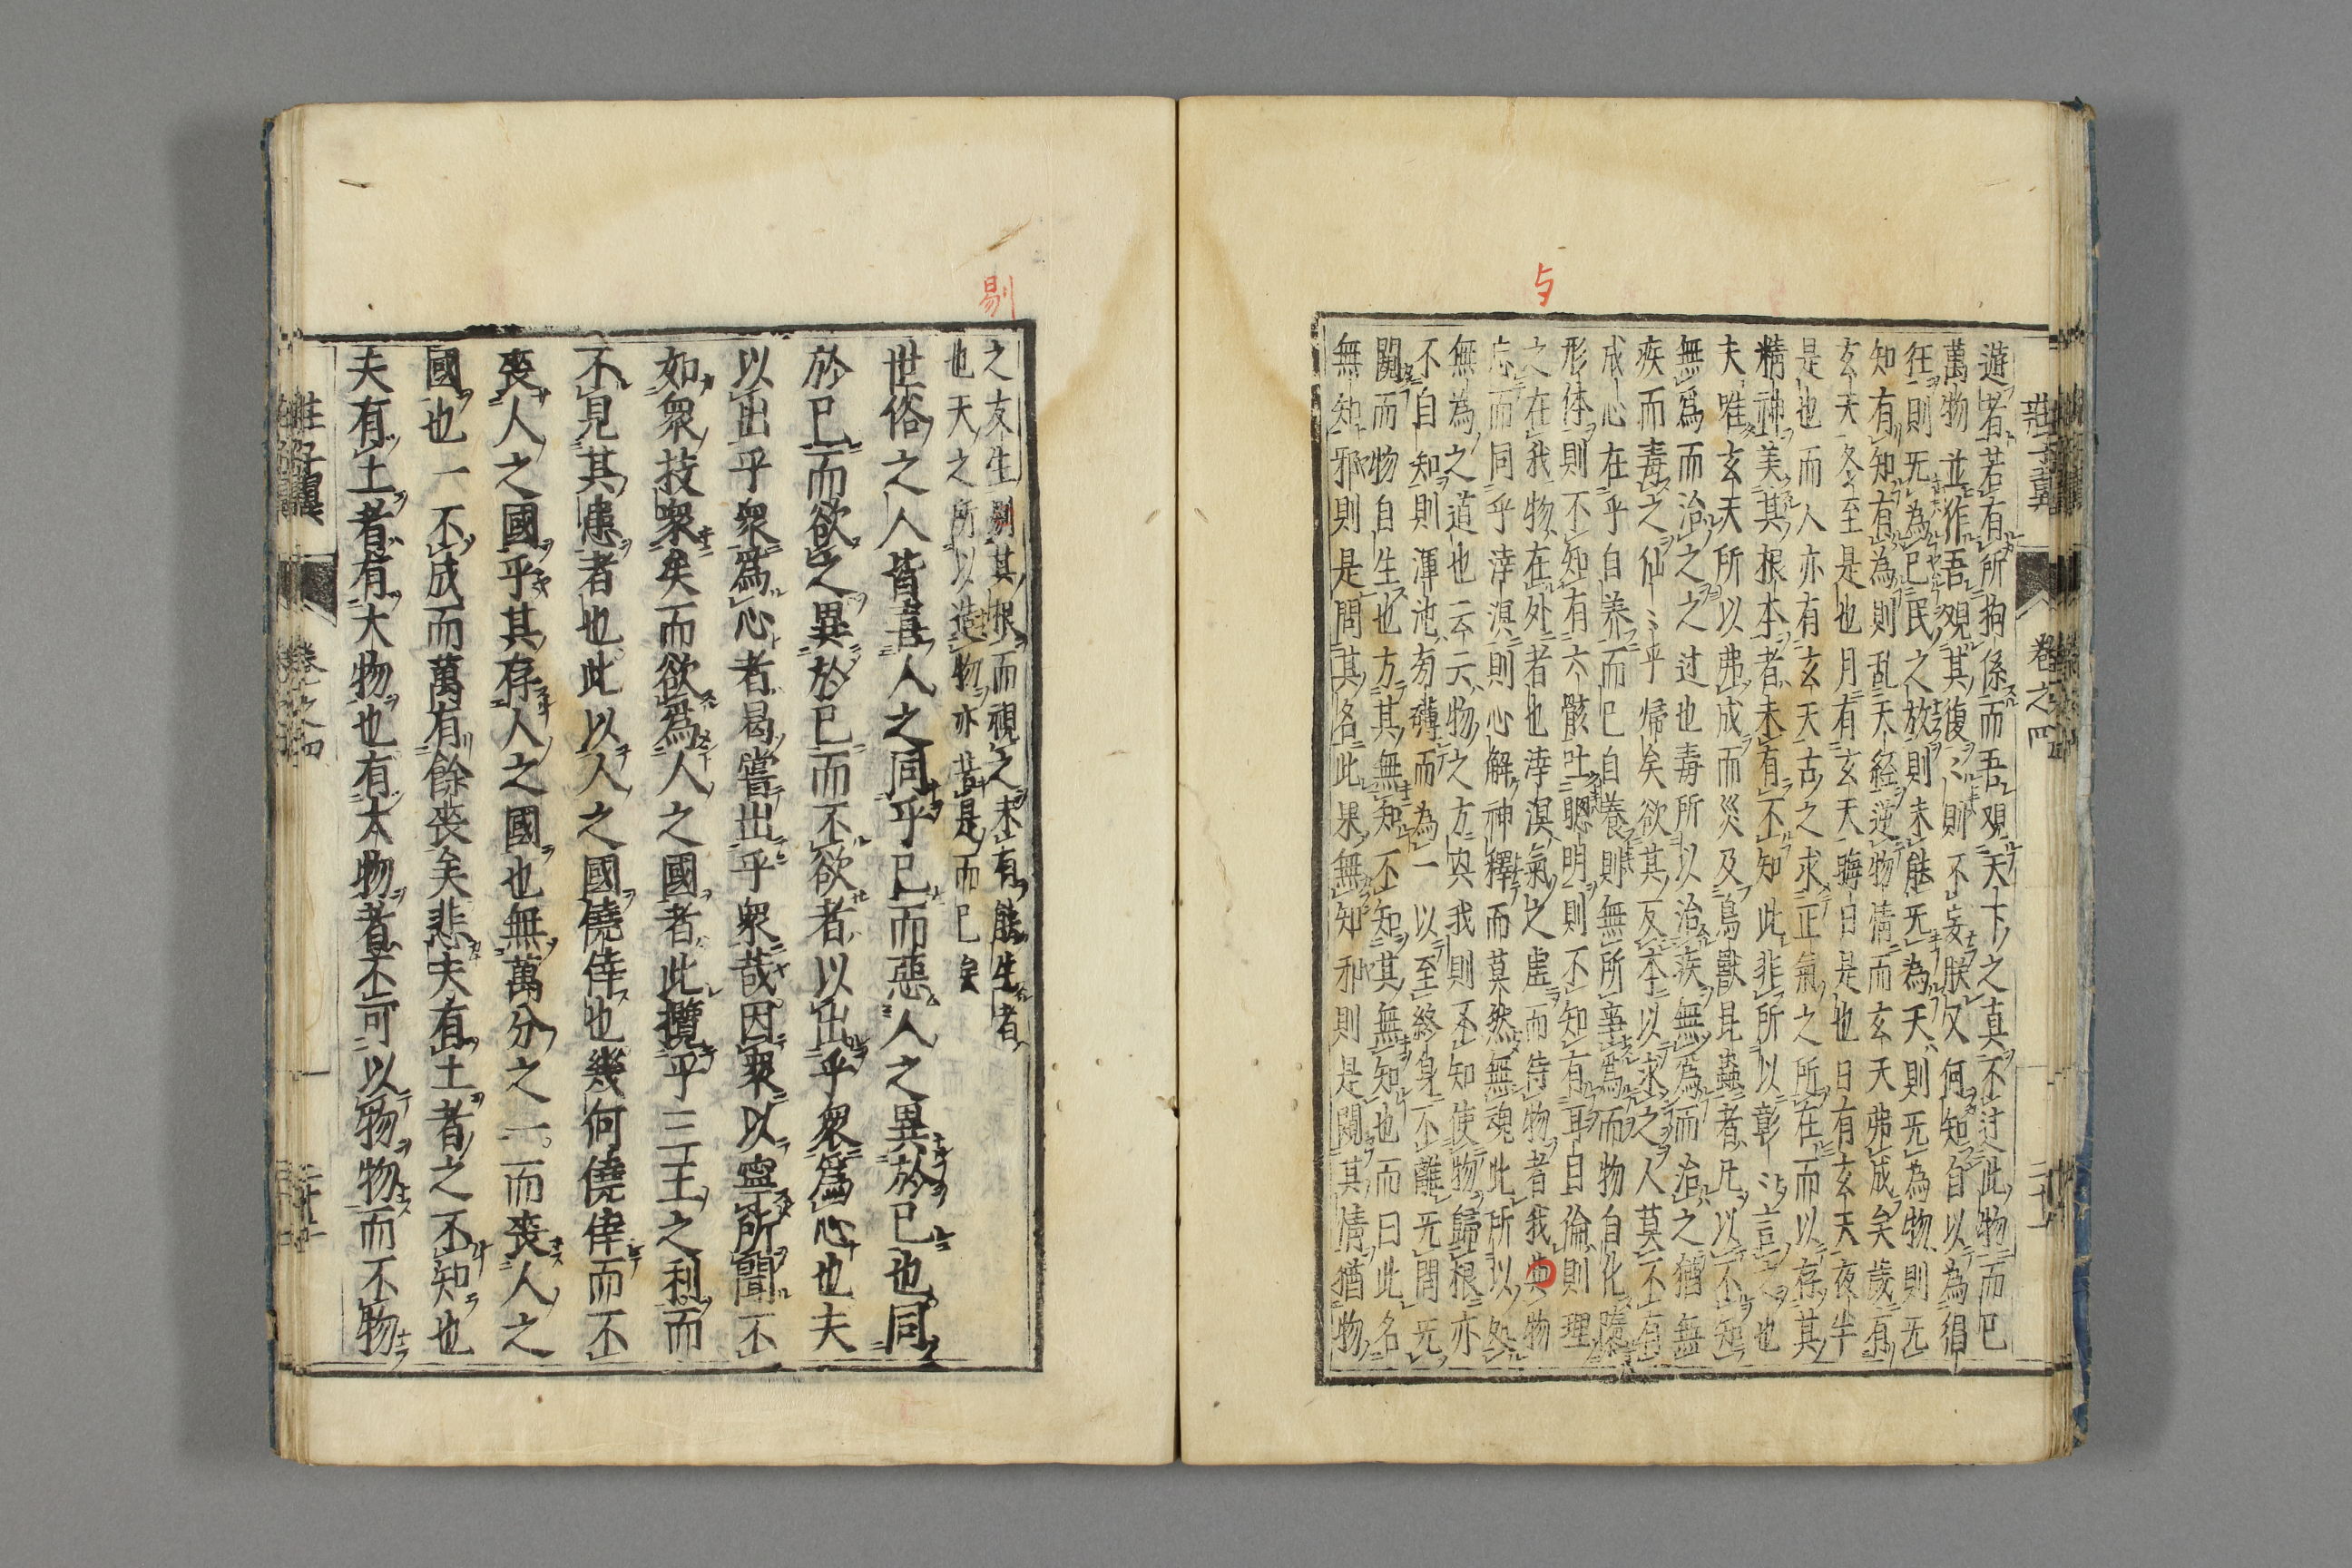 与
莊子翼 卷之四 二十一
遊者若有所拘係而吾观天下之真不过此物而已
萬物並作吾观其復〻則不妄朕又何知自以為猖
狂則无為已民之放則未能无為天則无為物則无
知有知有為則乱天経逆物情而玄天弗成矣歳有
玄天冬至是也月有玄天晦日是也日有玄天夜半
是也而人亦有玄天古之求正氣之所在而以存其
精神美其根本者未有不知此非所以彰〻言之也
夫唯玄天所以弗成而災及鳥獸昆蟲者凡以不知
無為而治之之过也毒所以治疾無為而治之猶無
疾而毒之仙〻乎帰矣欲其反本以求之人莫不有
成心在乎自养而已自養則無所事為而物自化隳
形体則不知有六骸吐聰明則不知有耳目倫則理
之在我物在外者也涬溟氣之虚而待物者我與物
忘而同乎涬溟則心解神釋而莫然無魂此所以処
無為之道也云云物之方其我則不知使物歸根亦
不自知則渾沌旁礴而為一以至終身不離无門无
闚而物自生也方其無知不知其無知也而曰此名
無知邪則是問其名此果無知邪則是闚其情猶物
剔
之友生剔其根而視之未有能生者
也天之所以造物亦昔是而已矣
世俗之人皆喜人之同乎已而惡人之異於已也同
於已而欲之異於已而不欲者以出乎衆爲心也夫
以出乎衆爲心者曷嘗出乎衆哉因衆以寧所聞不
如衆技衆矣而欲爲人之國者此攬乎三王之利而
不見其患者也此以人之國僥倖也幾何僥倖而不
喪人之國乎其存人之國也無萬分之一而喪人之
國也一不成而萬有餘喪矣悲夫有土者之不知也
夫有土者有大物也有大物者不可以物物而不物
莊子翼 卷之四 二十二